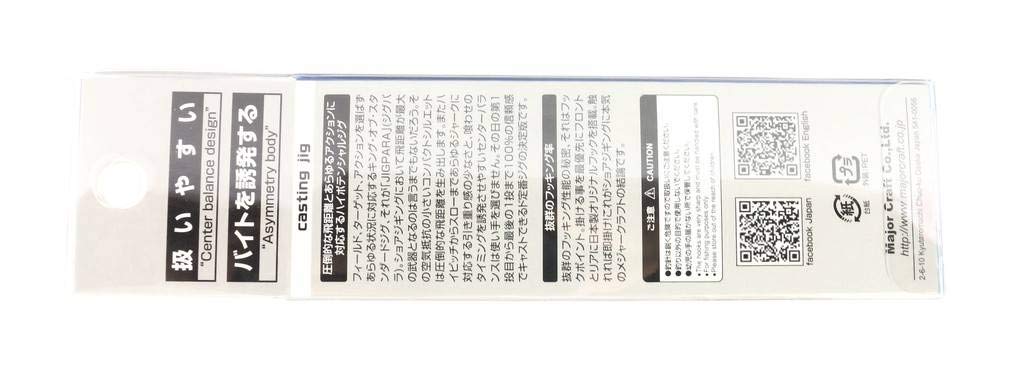 扱いやすい
"Center balance design"
バイトを誘発する
"Asymmetry body"
casting jig
圧倒的な飛距離とあらゆるアクションに
対応するハイポテンシャルジグ
フィールド、ターゲット、アクションを選ばず
あらゆる状況に対応するキング・オブ・スタ
ンダードジグ、それが「JIGPARA」(ジグパ
ラ)。ショアジギングにおいて飛距離が最大
の武器となるのは言うまでもないだろう。そ
の空気抵抗の小さいコンパクトシルエット
は圧倒的な飛距離を生み出します。またハ
イピッチからスローまであらゆるジャークに
対応する引き重り感の少なさと、喰わせの
タイミングを誘発させやすいセンターバラ
ンスは使い手を選びません。その日の第1
投目から最後の1投まで100%の信頼感
でキャストできるド定番ジグの決定版です。
抜群のフッキング率
抜群のフッキング性能の秘密、それはフッ
クポイント。掛ける事を最優先にフロント
とリアに日本製オリジナルフックを搭載。触
れれば即掛け!これがショアジギング本気
のメジャークラフトの結論です。
ご注意 CAUTION
●釣針は鋭く危険ですので取扱いにご注意ください。
●釣り以外の目的で使用しないでください。
●幼児の手の届かない所で保管してください。
●The hooks are very sharp
●For fishing purposes only.
●Please store out of the reach of children.
facebook English
facebook Japan
プラ
外装:PET
紙
台紙
Major Craft Co.,Ltd.
http://www.majorcraft.co.jp
2-6-10 Kyutaromachi Chuo-ku Osaka Japan 541-0056